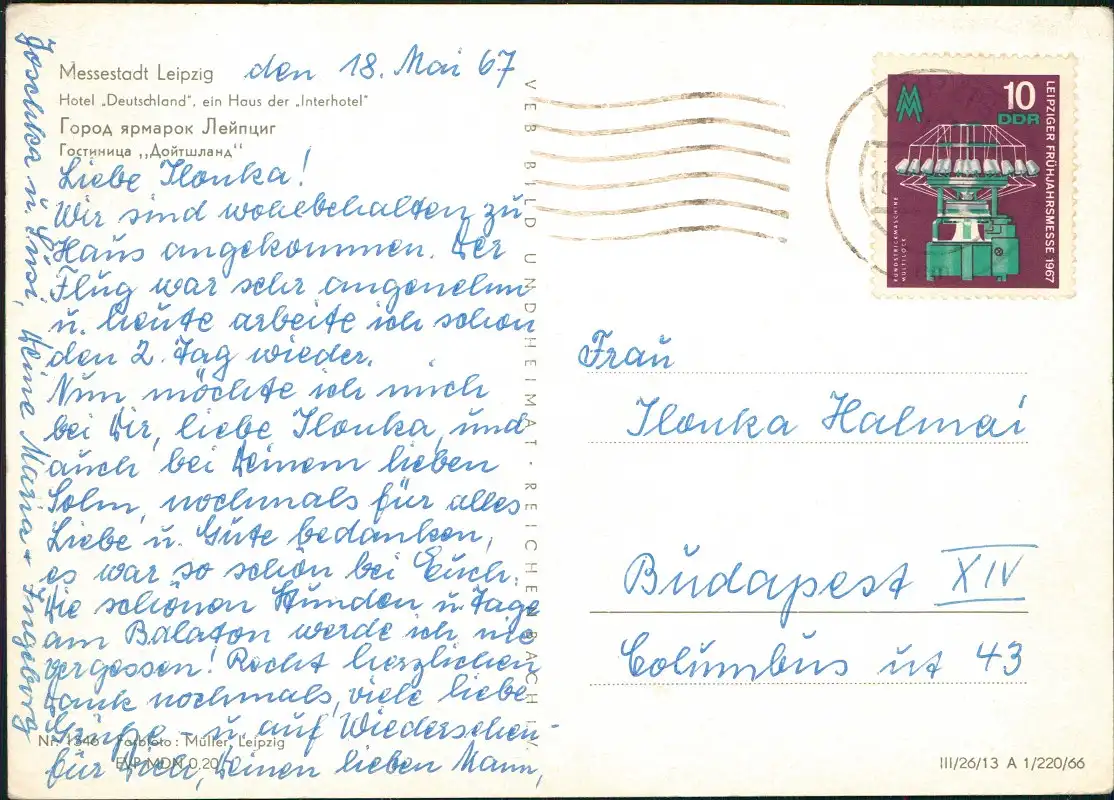 Messestadt Leipzig den 18. Mai 67
Hotel „Deutschland", ein Haus der „Interhotel"
Город ярмарок Лейпциг
Гостиница ,,Дойтшланд"
Liebe Ilonka!
Wir sind wohlbehalten zu
Haus angekommen. Der
Flug war sehr angenehm
u. heute arbeite ich schon
den 2. Tag wieder.
Nun möchte ich mich
bei Dir, liebe Ilonka, und
auch bei Deinem lieben
Sohn, nochmals für alles
Liebe u. Gute bedanken,
es war so schön bei Euch.
Die schönen Stunden u. Tage
am Balaton werde ich nie
vergessen! Recht herzlichen
Dank nochmals, viele liebe
Grüße - u. auf Wiedersehen -
für Dich, Deinen lieben Mann,
Joschka u. Susi, Deine Maria + Ingeborg
Nr. 1346 Farbfoto: Müller, Leipzig
EVP MDN 0,20
VEB BILD UND HEIMAT · REICHENBACH I. V.
10
DDR
LEIPZIGER FRÜHJAHRSMESSE 1967
RUNDSTRICKMASCHINE
MULTILOCK
Frau
Ilonka Halmai
Budapest XIV
Columbus ut 43
III/26/13 A 1/220/66